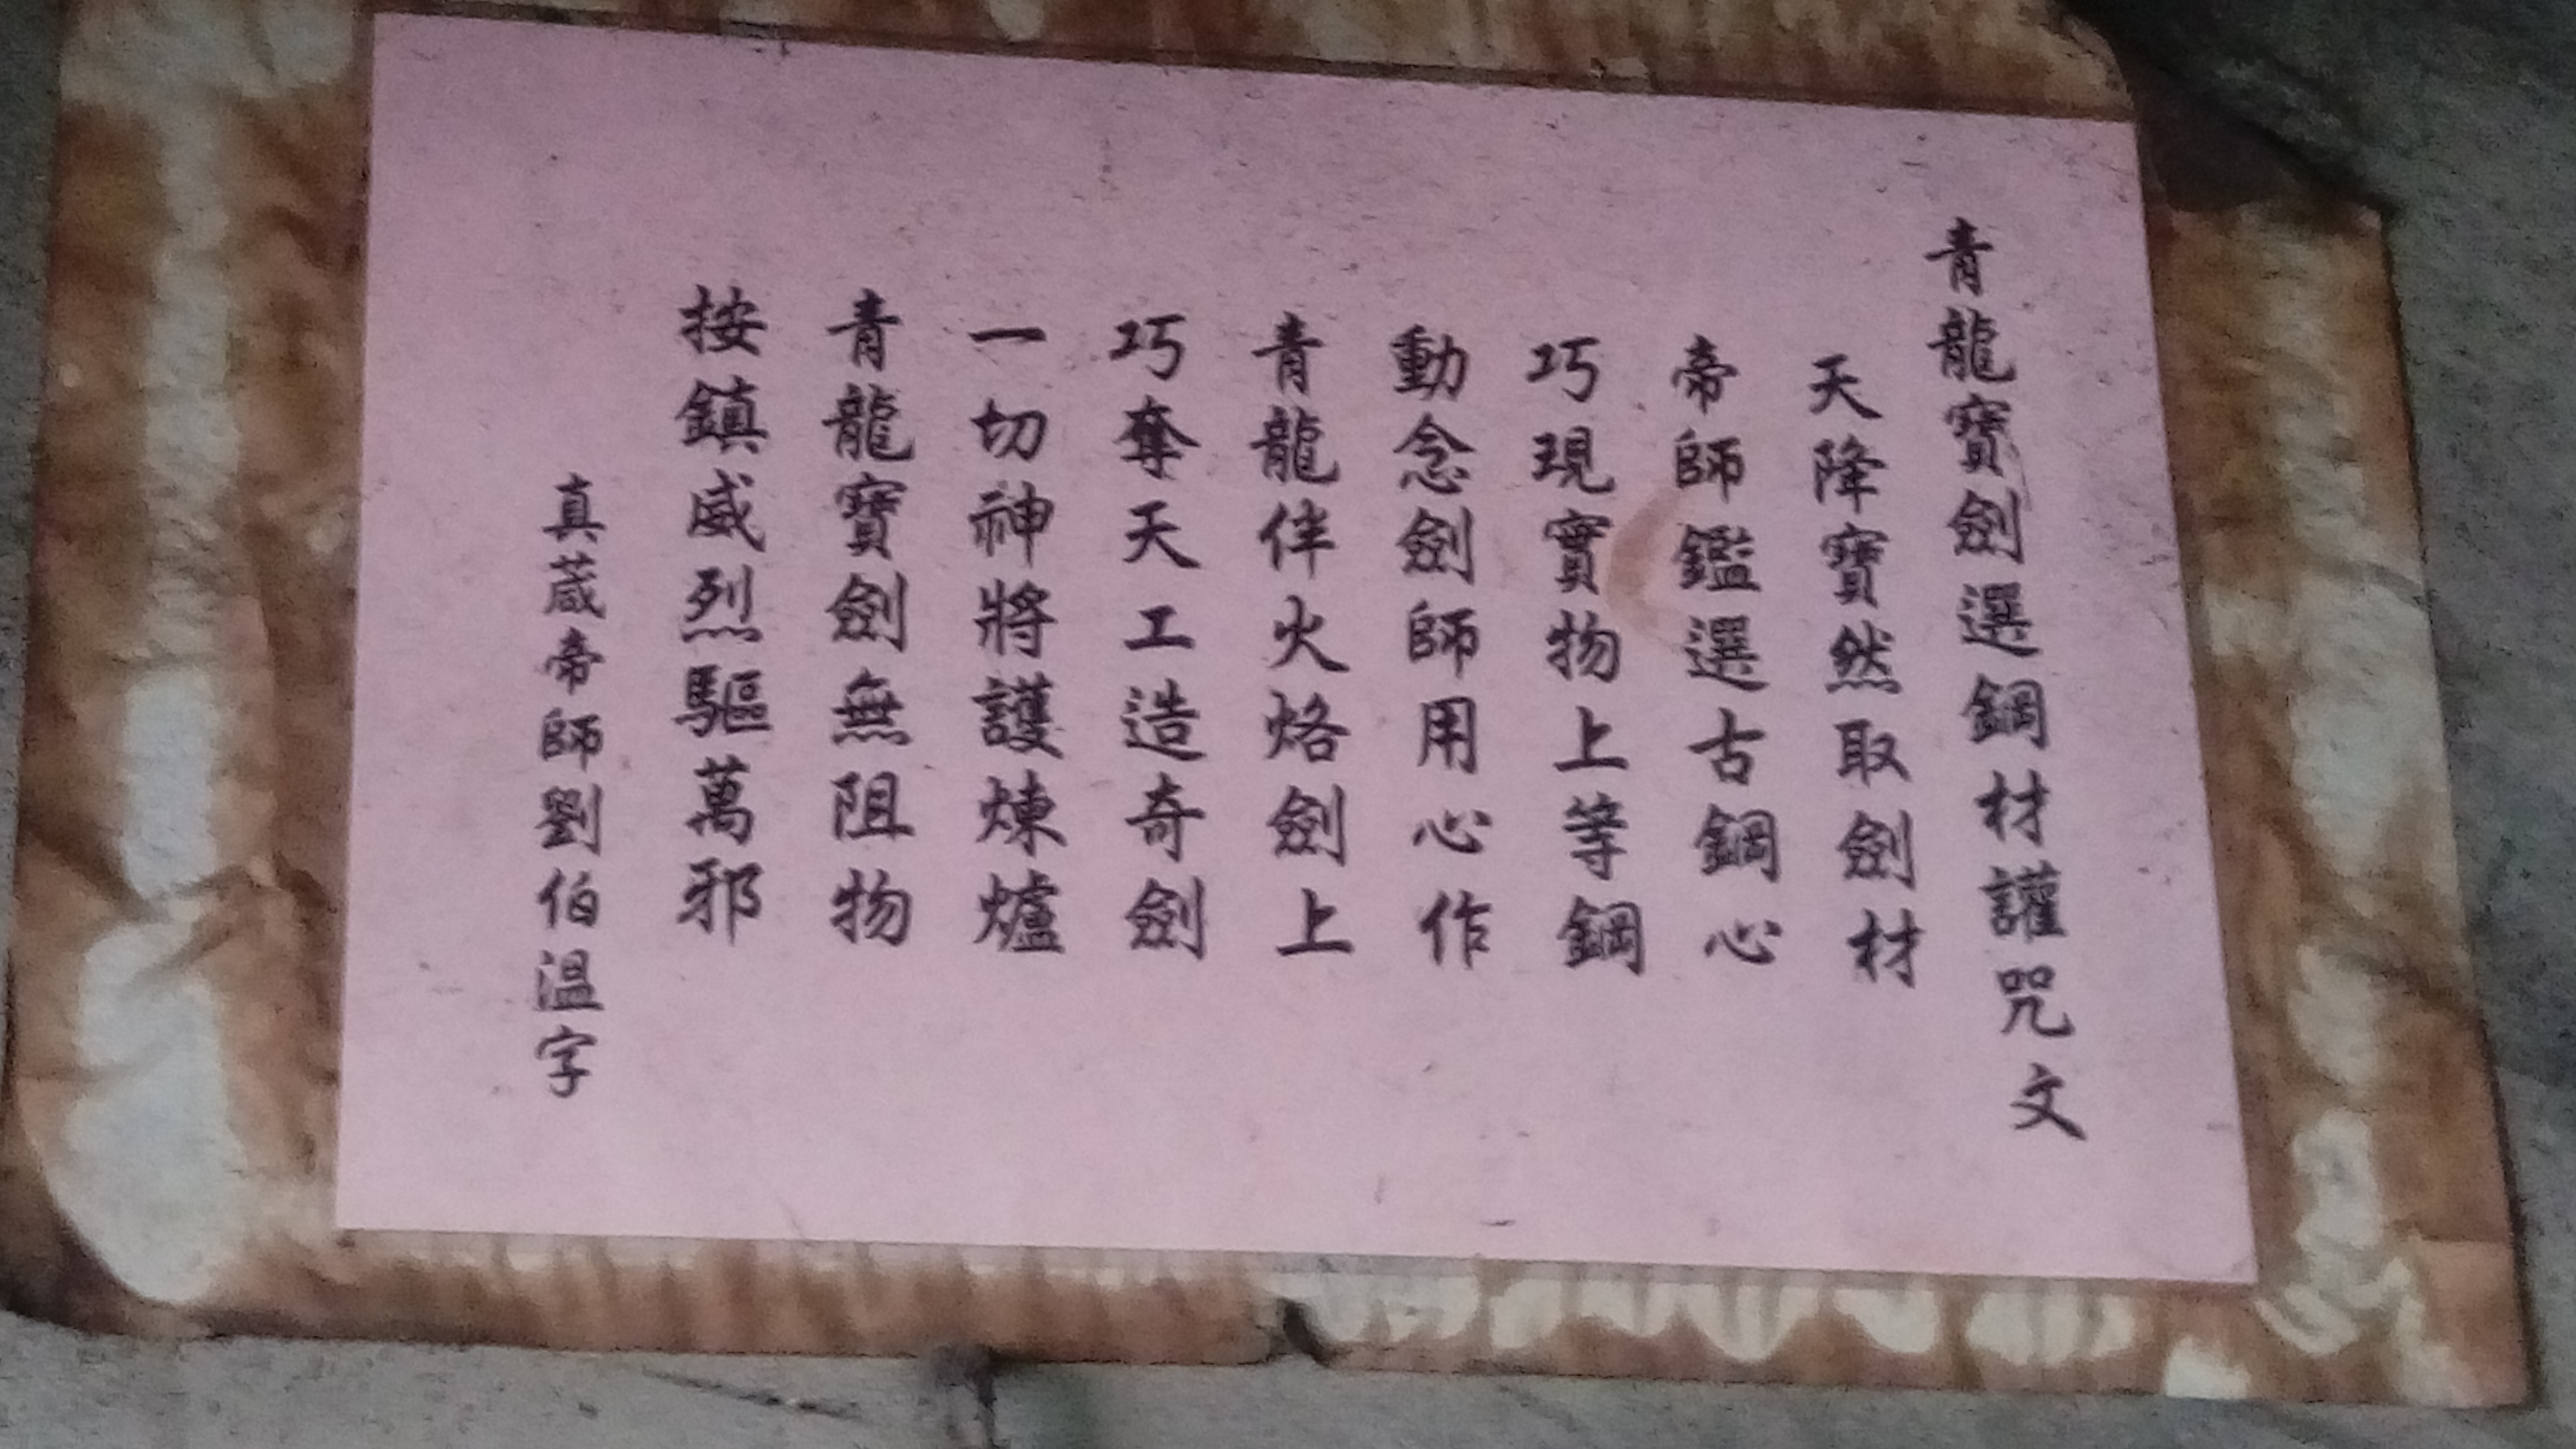 青龍寶劍選鋼材讙咒文
天降寶然取劍材
帝師鑑選古鋼心
巧現實物上等鋼
動念劍師用心作
青龍伴火烙劍上
巧奪天工造奇劍
一切神將護煉爐
青龍寶劍無阻物
按鎮威烈驅萬邪
真蒇帝師劉伯溫字